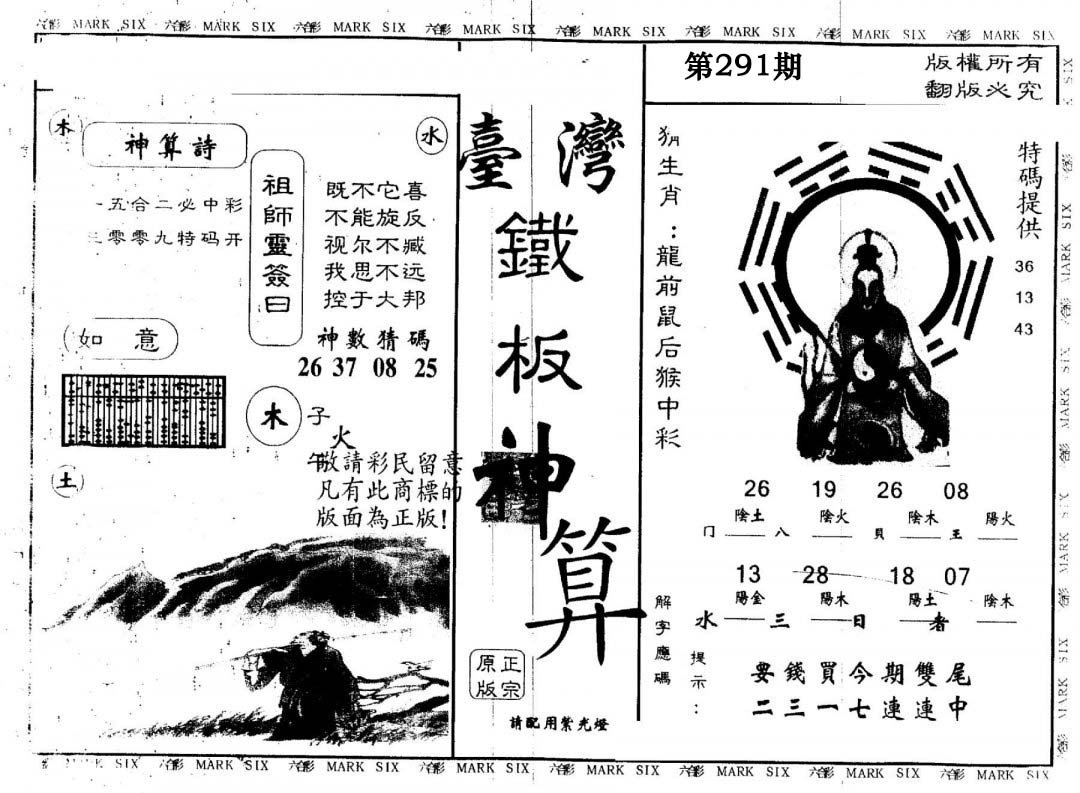 六合彩 MARK SIX 六合彩 MARK SIX 六合彩 MARK SIX 六合彩 MARK SIX 六合彩 MARK SIX 六合彩 MARK SIX 六合彩 MARK SIX 六合彩 MARK SIX
第291期
版權所有
翻版必究
木
神算詩
水
五合二必中彩
零零九特码开
祖師靈簽曰
既不它喜
不能旋反
视尔不臧
我思不远
控于大邦
神數猜碼
26 37 08 25
如意
木
子
火
午
敬請彩民留意
凡有此商標的
版面為正版!
土
臺灣
鐵板神算
正宗
原版
請配用紫光燈
生肖:龍前鼠后猴中彩
特碼提供
36
13
43
26 19 26 08
陰土 陰火 陰木 陽火
门 八 貝 王
13 28 18 07
陽金 陽木 陽土 陰木
水 三 日 者
解字應碼
提示:
要錢買今期雙尾
二三一七連連中
SIX 六合彩 MARK SIX 六合彩 MARK SIX 六合彩 MARK SIX 六合彩 MARK SIX 六合彩 MARK SIX 六合彩 MARK SIX 六合彩 MARK SIX